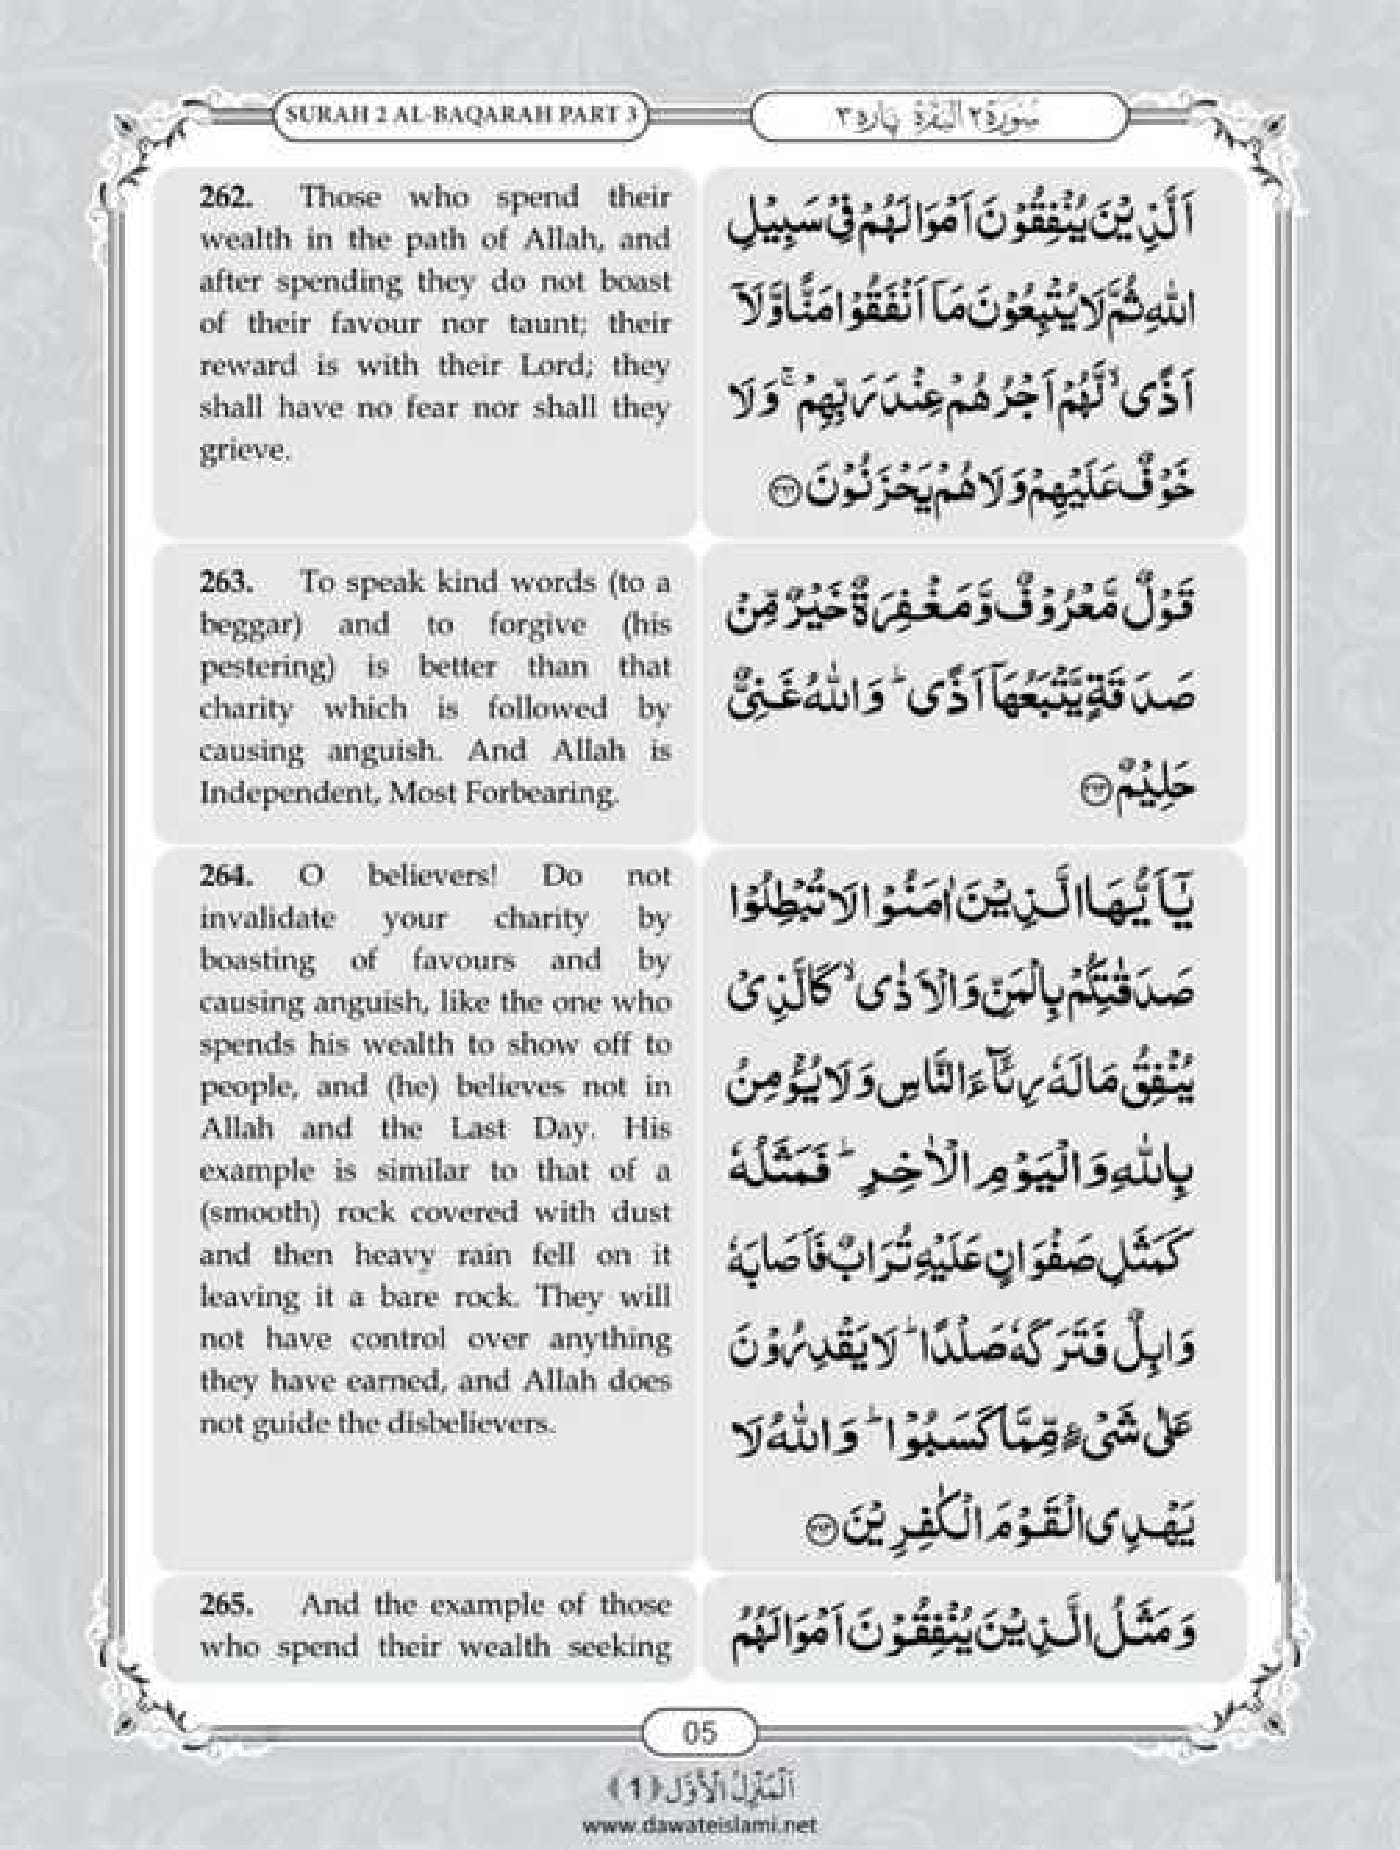 SURAH 2 AL-BAQARAH PART 3
سُوْرَةُ ٢ الْبَقَرَة پارہ ٣
262. Those who spend their
wealth in the path of Allah, and
after spending they do not boast
of their favour nor taunt; their
reward is with their Lord; they
shall have no fear nor shall they
grieve.
اَلَّذِیْنَ یُنْفِقُوْنَ اَمْوَالَهُمْ فِیْ سَبِیْلِ
اللّٰهِ ثُمَّ لَا یُتْبِعُوْنَ مَاۤ اَنْفَقُوْا مَنًّا وَّ لَاۤ
اَذًىۙ لَّهُمْ اَجْرُهُمْ عِنْدَ رَبِّهِمْۚ وَ لَا
خَوْفٌ عَلَیْهِمْ وَ لَا هُمْ یَحْزَنُوْنَ ﴿۲۶۲﴾
263. To speak kind words (to a
beggar) and to forgive (his
pestering) is better than that
charity which is followed by
causing anguish. And Allah is
Independent, Most Forbearing.
قَوْلٌ مَّعْرُوْفٌ وَّ مَغْفِرَةٌ خَیْرٌ مِّنْ
صَدَقَةٍ یَّتْبَعُهَاۤ اَذًىؕ وَ اللّٰهُ غَنِیٌّ
حَلِیْمٌ ﴿۲۶۳﴾
264. O believers! Do not
invalidate your charity by
boasting of favours and by
causing anguish, like the one who
spends his wealth to show off to
people, and (he) believes not in
Allah and the Last Day. His
example is similar to that of a
(smooth) rock covered with dust
and then heavy rain fell on it
leaving it a bare rock. They will
not have control over anything
they have earned, and Allah does
not guide the disbelievers.
یٰۤاَیُّهَا الَّذِیْنَ اٰمَنُوْا لَا تُبْطِلُوْا
صَدَقٰتِكُمْ بِالْمَنِّ وَ الْاَذٰىۙ كَالَّذِیْ
یُنْفِقُ مَالَهٗ رِئَآءَ النَّاسِ وَ لَا یُؤْمِنُ
بِاللّٰهِ وَ الْیَوْمِ الْاٰخِرِؕ فَمَثَلُهٗ
كَمَثَلِ صَفْوَانٍ عَلَیْهِ تُرَابٌ فَاَصَابَهٗ
وَابِلٌ فَتَرَكَهٗ صَلْدًاؕ لَا یَقْدِرُوْنَ
عَلٰى شَیْءٍ مِّمَّا كَسَبُوْاؕ وَ اللّٰهُ لَا
یَهْدِی الْقَوْمَ الْكٰفِرِیْنَ ﴿۲۶۴﴾
265. And the example of those
who spend their wealth seeking
وَ مَثَلُ الَّذِیْنَ یُنْفِقُوْنَ اَمْوَالَهُمُ
05
اَلْمَنْزِلُ الْاَوَّل (1)
www.dawateislami.net